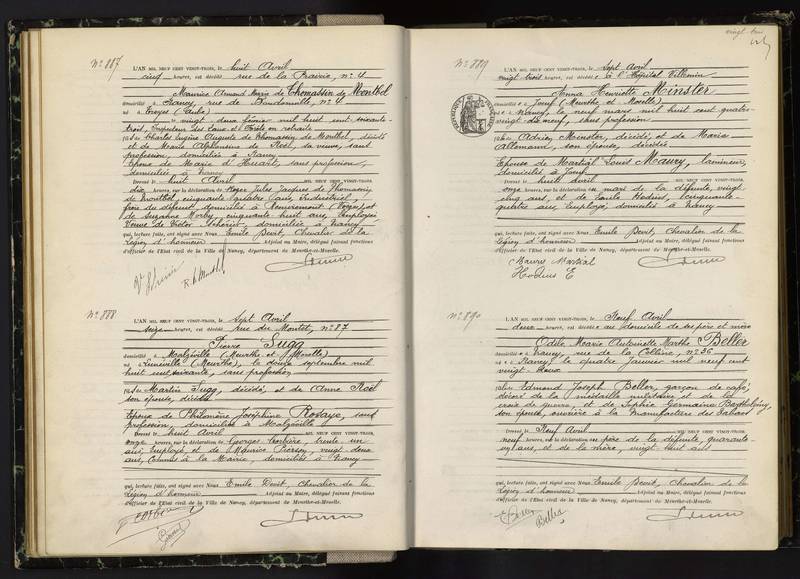 N° 887
L'AN MIL NEUF CENT VINGT-TROIS, le huit Avril
cinq heures, est décédé rue de la Prairie, n° 4
Maurice Armand Marie de Thomassin de Montbel
domicilié à Nancy, rue de Boudonville, n° 4
né à Troyes (Aube)
le vingt deux février mil huit cent soixante-
trois, Inspecteur des Eaux et Forêts en retraite
fils de Charles Eugène Auguste de Thomassin de Montbel, décédé
et de Marie Alphonsine de Roël, sa veuve, sans
profession, domiciliée à Nancy
Epoux de Marie d'Huart, sans profession,
domiciliée à Nancy
Dressé le huit Avril MIL NEUF CENT VINGT-TROIS,
dix heures, sur la déclaration de Roger Jules Jacques de Thomassin
de Montbel, cinquante quatre ans, industriel,
frère du défunt, domicilié à Remiremont (Vosges) et
de Suzanne cinquante huit ans, Employée
Veuve de Victor domiciliée à Nancy
qui, lecture faite, ont signé avec Nous Emile Devit, Chevalier de la
Légion d'honneur Adjoint au Maire, délégué faisant fonctions
d'officier de l'Etat civil de la Ville de Nancy, département de Meurthe-et-Moselle.
N° 888
L'AN MIL NEUF CENT VINGT-TROIS, le sept Avril
seize heures, est décédé rue du Montet, n° 87
Pierre Sugg
domicilié à Malzéville (Meurthe et Moselle)
né à Lunéville (Meurthe), le douze septembre mil
huit cent soixante, sans profession
fils de Martin Sugg, décédé, et de Anne Roël
son épouse, décédée
Epoux de Philomène Joséphine Rosaye, sans
profession, domiciliée à Malzéville
Dressé le huit Avril MIL NEUF CENT VINGT-TROIS,
onze heures, sur la déclaration de Georges trente un
ans, Employé et de Maurice Pierson, vingt deux
ans, Commis à la Mairie, domiciliés à Nancy
qui, lecture faite, ont signé avec Nous Emile Devit, Chevalier de la
Légion d'honneur Adjoint au Maire, délégué faisant fonctions
d'officier de l'Etat civil de la Ville de Nancy, département de Meurthe-et-Moselle.
vingt-trois
N° 889
L'AN MIL NEUF CENT VINGT-TROIS, le sept Avril
vingt trois heures, est décédée à l'Hôpital Villemin
Anna Henriette Minster
domiciliée à Joeuf (Meurthe et Moselle)
née à Nancy, le neuf mars mil huit cent quatre-
vingt-dix neuf, sans profession
fille de Adrien Minster, décédé, et de Marie
Allemann, son épouse, décédée
Epouse de Martial Louis Maury, lamineur,
domicilié à Joeuf
Dressé le huit Avril MIL NEUF CENT VINGT-TROIS,
onze heures, sur la déclaration du mari de la défunte, vingt-
cinq ans, et de Emile Hodius, cinquante-
quatre ans, Employé, domicilié à Nancy
qui, lecture faite, ont signé avec Nous Emile Devit, Chevalier de la
Légion d'honneur Adjoint au Maire, délégué faisant fonctions
d'officier de l'Etat civil de la Ville de Nancy, département de Meurthe-et-Moselle.
Maury Martial
Hodius E
N° 890
L'AN MIL NEUF CENT VINGT-TROIS, le Neuf Avril
deux heures, est décédée au domicile de ses père et mère
Odile Marie Antoinette Marthe Beller
domiciliée à Nancy, rue de la Colline, n° 36
née à Nancy, le quatre janvier mil neuf cent
vingt-deux
fille de Edmond Joseph Beller, garçon de café,
décoré de la médaille militaire et de la
croix de guerre, et de Sophie Germaine Barthélémy,
son épouse, ouvrière à la Manufacture des Tabacs
Dressé le Neuf Avril MIL NEUF CENT VINGT-TROIS,
neuf heures, sur la déclaration du père de la défunte, quarante-
un ans, et de la mère, vingt-huit ans
qui, lecture faite, ont signé avec Nous Emile Devit, Chevalier de la
Légion d'honneur Adjoint au Maire, délégué faisant fonctions
d'officier de l'Etat civil de la Ville de Nancy, département de Meurthe-et-Moselle.
Beller
Beller